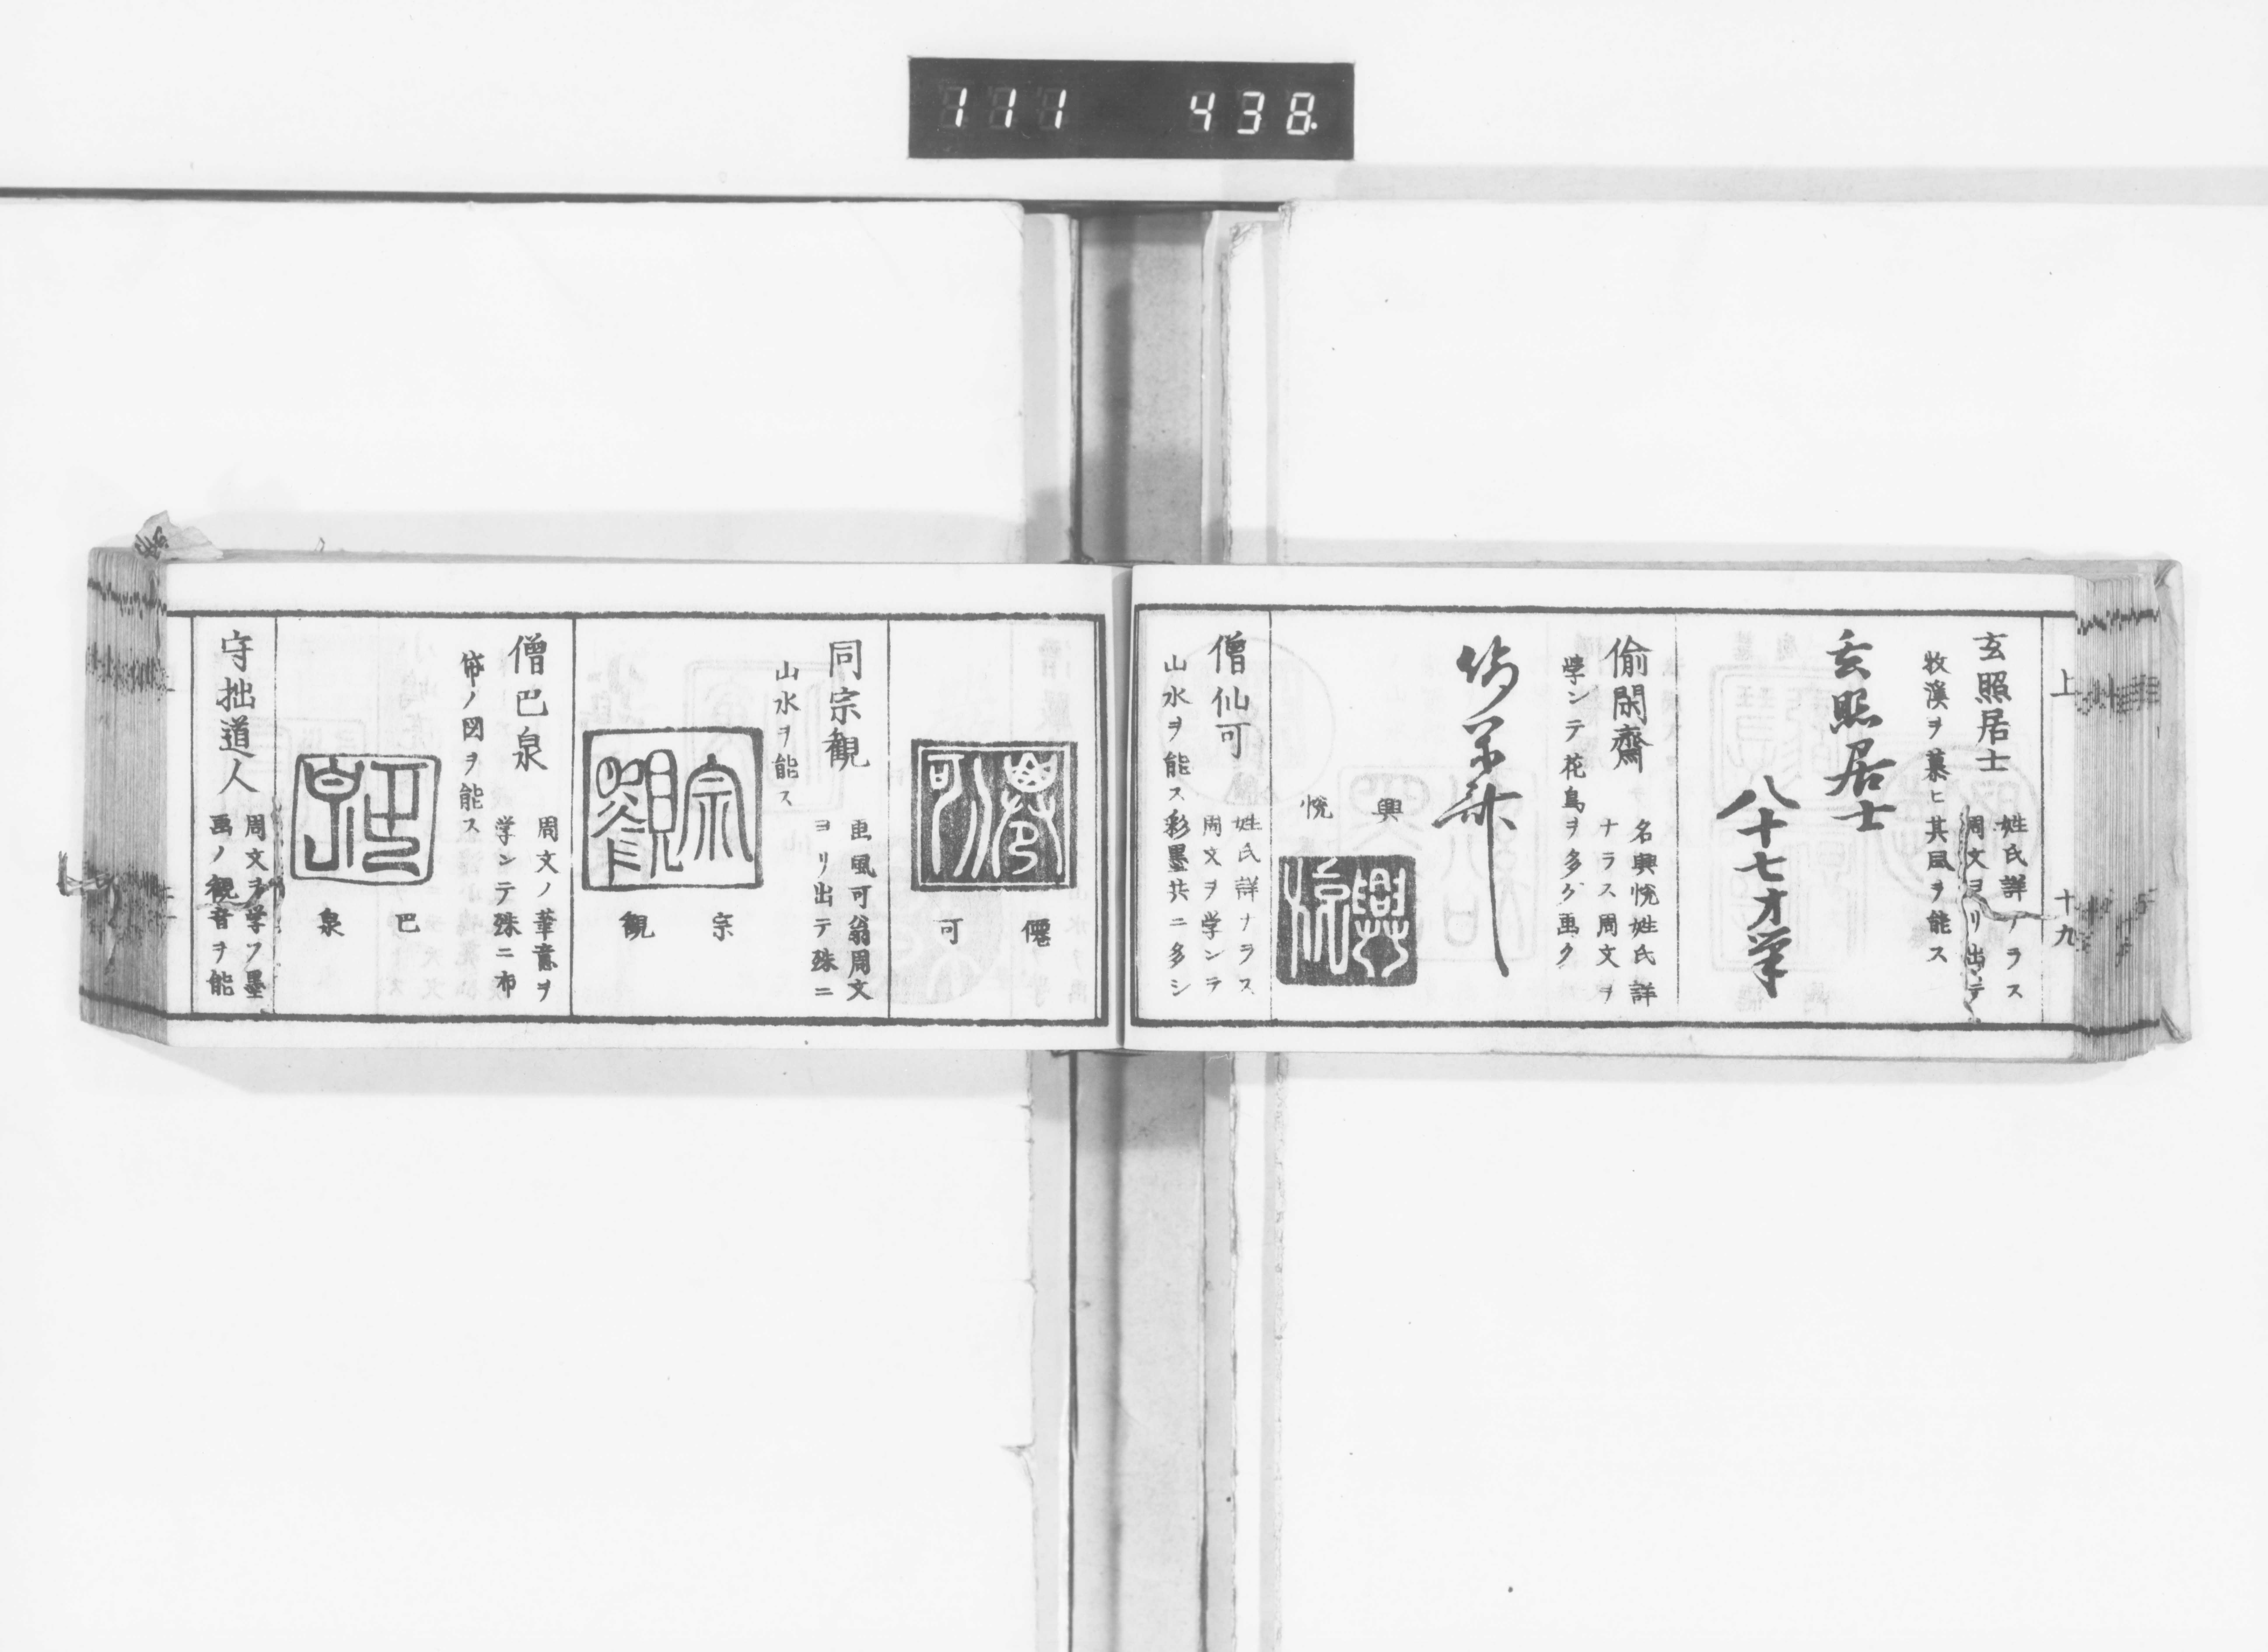 111 438
上 十九
玄照居士
姓氏詳ナラス
周文ヨリ出テ
牧溪ヲ慕ヒ其風ヲ能ス
玄照居士
八十七才筆
偷閑齋
名興悅姓氏詳
ナラス周文ヲ
學ンテ花鳥ヲ多ク画ク
興
悅
僧仙可
姓氏詳ナラス
周文ヲ学ンテ
山水ヲ能ス彩墨共ニ多シ
僊
可
同宗観
画風可翁周文
ヨリ出テ殊ニ
山水ヲ能ス
宗觀
宗
觀
僧巴泉
周文ノ筆意ヲ
学ンテ殊ニ布
帒ノ図ヲ能ス
巴泉
巴
泉
守拙道人
周文ヲ学フ墨
画ノ観音ヲ能